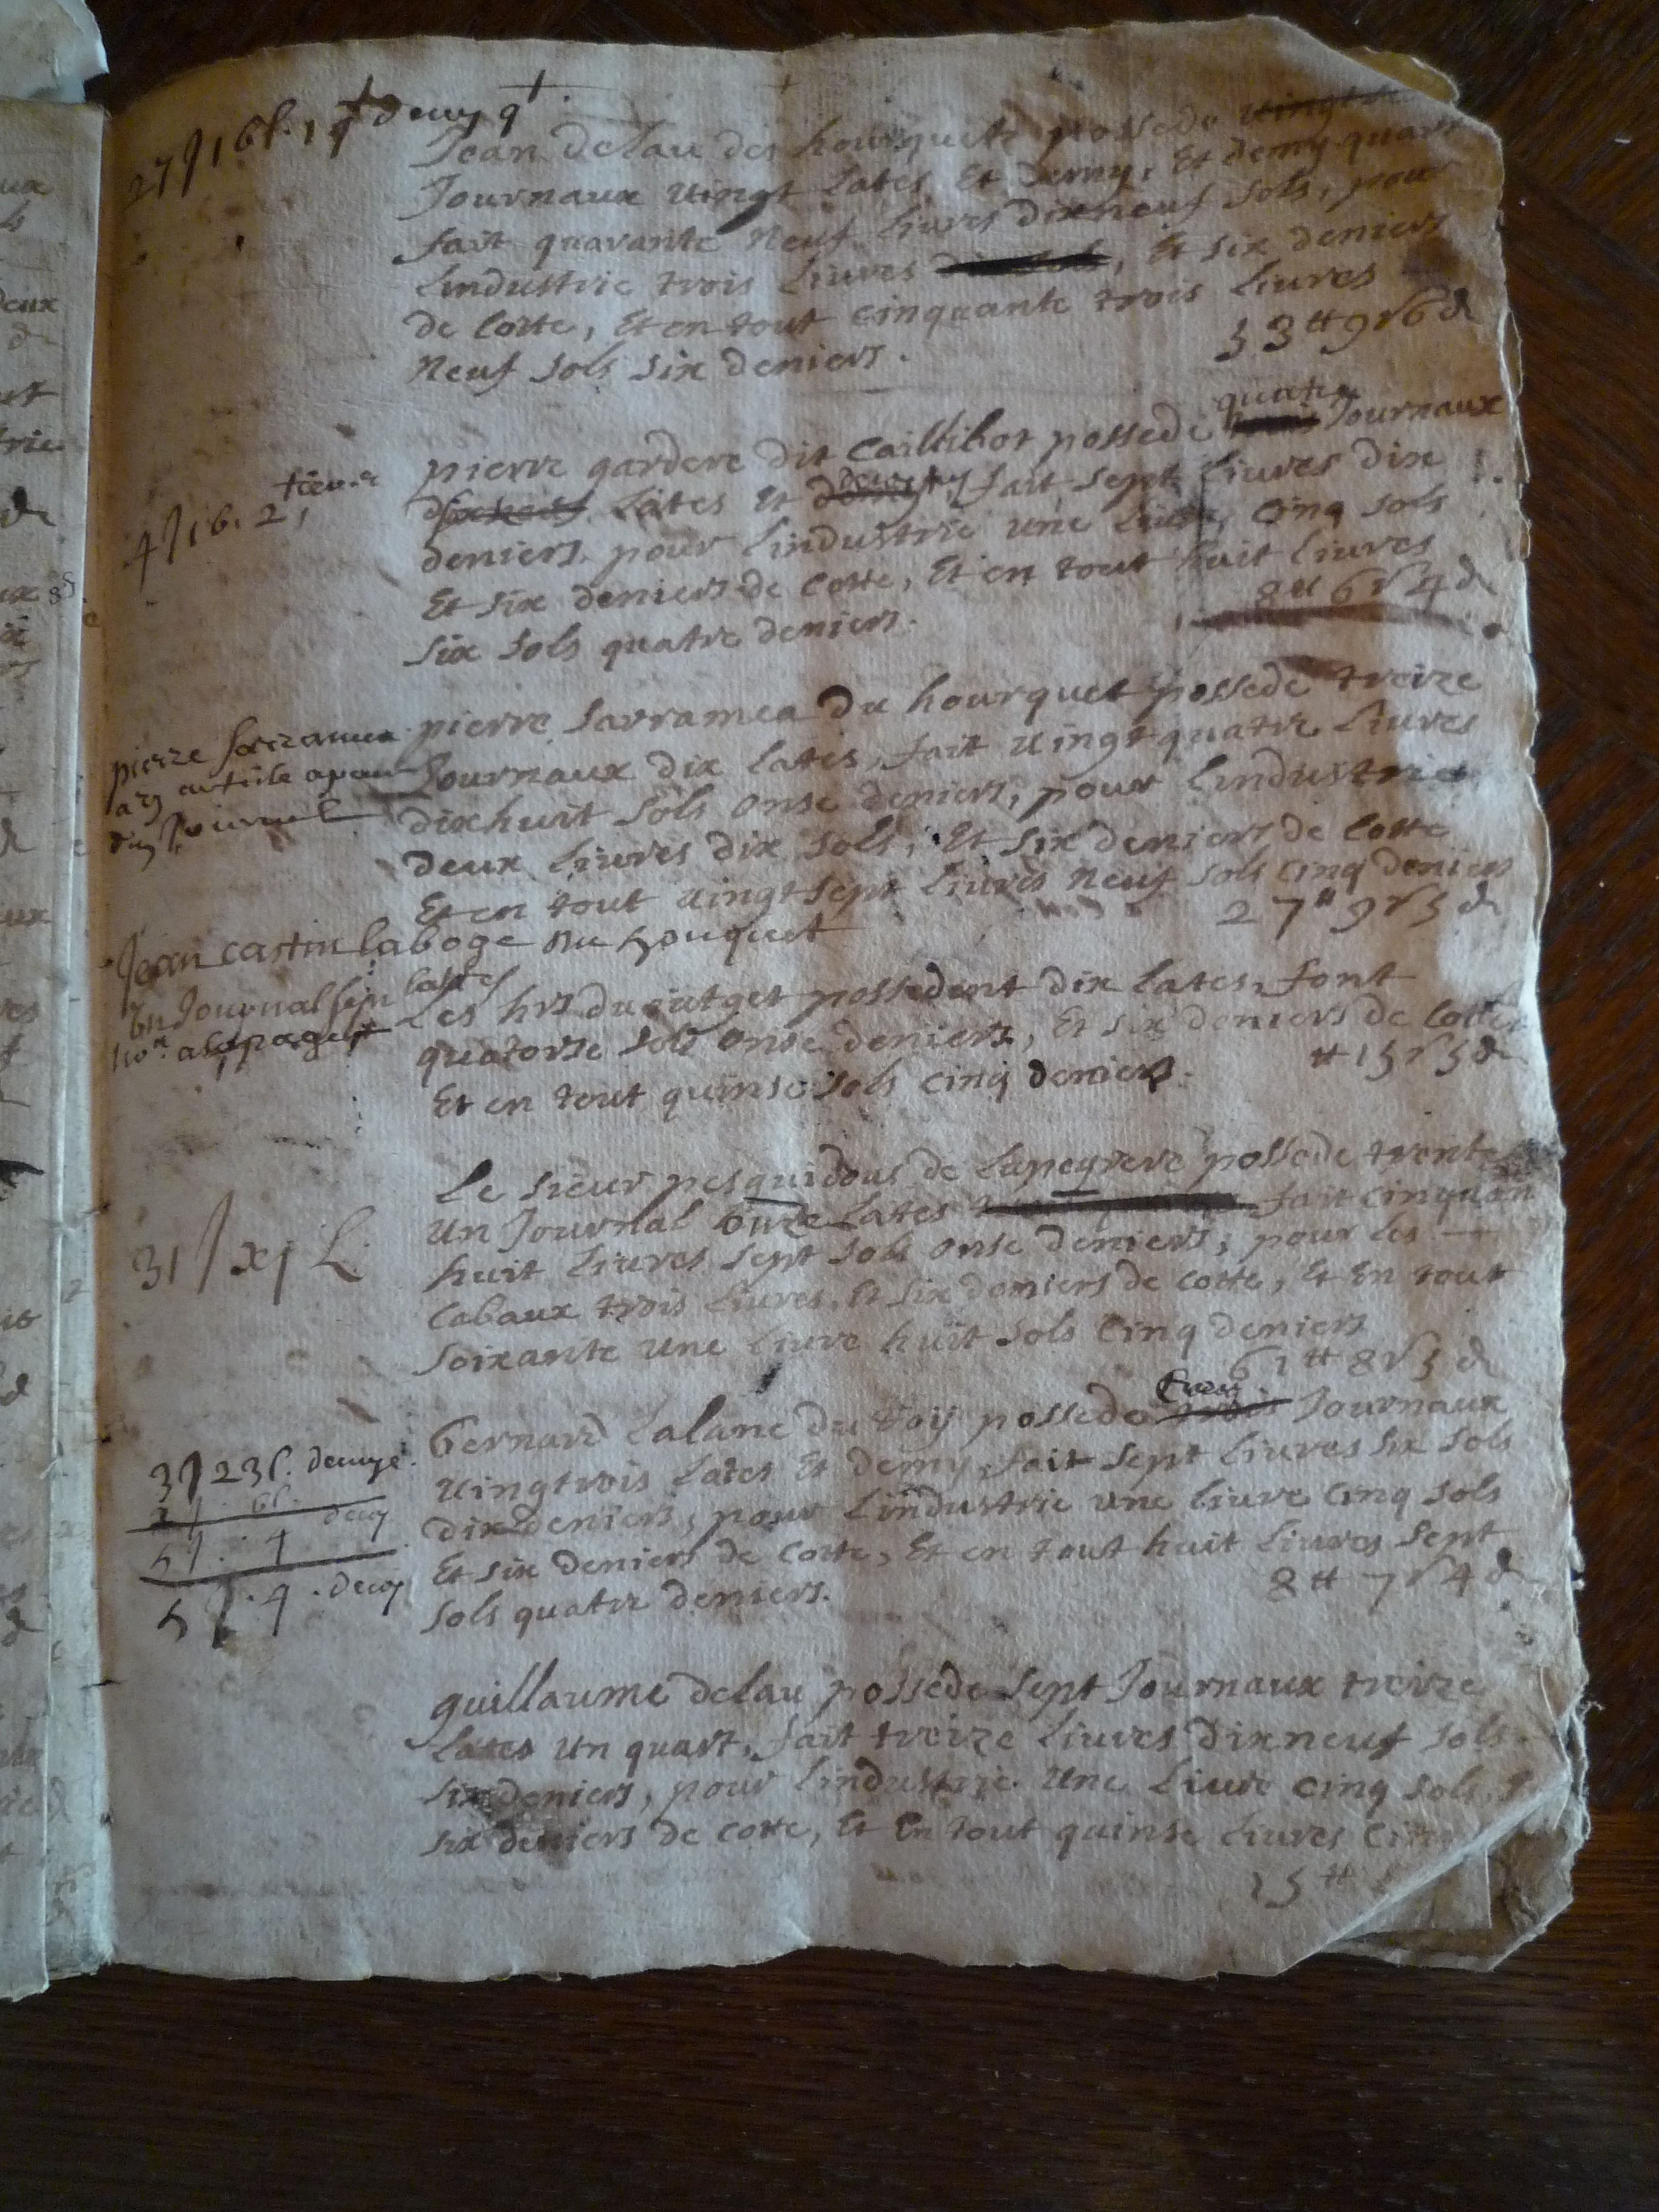 27J 16l. 1 qt demy qt.
Jean delau des hourquets possede vingt
Journaux vingt Lates Et demy, Et demy quart
fait quarante Neuf Livres dixneuf sols, pour
Lindustrie trois Livres, Et six deniers
de Cotte, Et en tout cinquante trois Livres
Neuf sols six deniers.
53 tt 9 s 6 d
4J 16. 2 tiers
quatre
pierre gardere dit Caillibot possede Journaux
Lates Et fait sept Livres dix
deniers pour Lindustrie une Livre, cinq sols
Et six deniers de Cotte, Et en tout huit Livres
six sols quatre deniers.
8 tt 6 s 4 d
pierre sarramea
du Journal
pierre sarramea du hourquet possede treize
Journaux dix Lates, fait vingt quatre Livres
dixhuit sols onse deniers, pour Lindustrie
deux Livres dix sols, Et six deniers de Cotte
Et en tout vingt sept Livres Neuf sols cinq deniers
27 tt 9 s 5 d
Jean castin laboge du houquet
un Journal sept lattes
Les hrs du putget possedent dix Lates, font
quatorse sols onse deniers, Et six deniers de Cotte
Et en tout quinse sols cinq deniers.
tt 15 s 5 d
31 J xj L.
Le sieur pesquidous de Lapeyrere possede trente
un Journal onze Lates fait cinquan
huit Livres sept sols onse deniers, pour les
Cabaux trois Livres, Et six deniers de Cotte, Et En tout
soixante une Livre huit sols cinq deniers
61 tt 8 s 5 d
3J 23l. demye.
1J. 6l.
5J. 4 demy
5J. 4. demy
bernard Lalane du toij possede trois Journaux
vingtrois Lates Et demy, fait sept Livres six sols
dix deniers, pour Lindustrie une livre cinq sols
Et six deniers de Cotte, Et en tout huit Livres sept
sols quatre deniers.
8 tt 7 s 4 d
guillaume delau possede sept Journaux treize
Lates un quart, fait treize Livres dixneuf sols
six deniers, pour Lindustrie une Livre cinq sols,
six deniers de cotte, Et En tout quinse Livres
15 tt